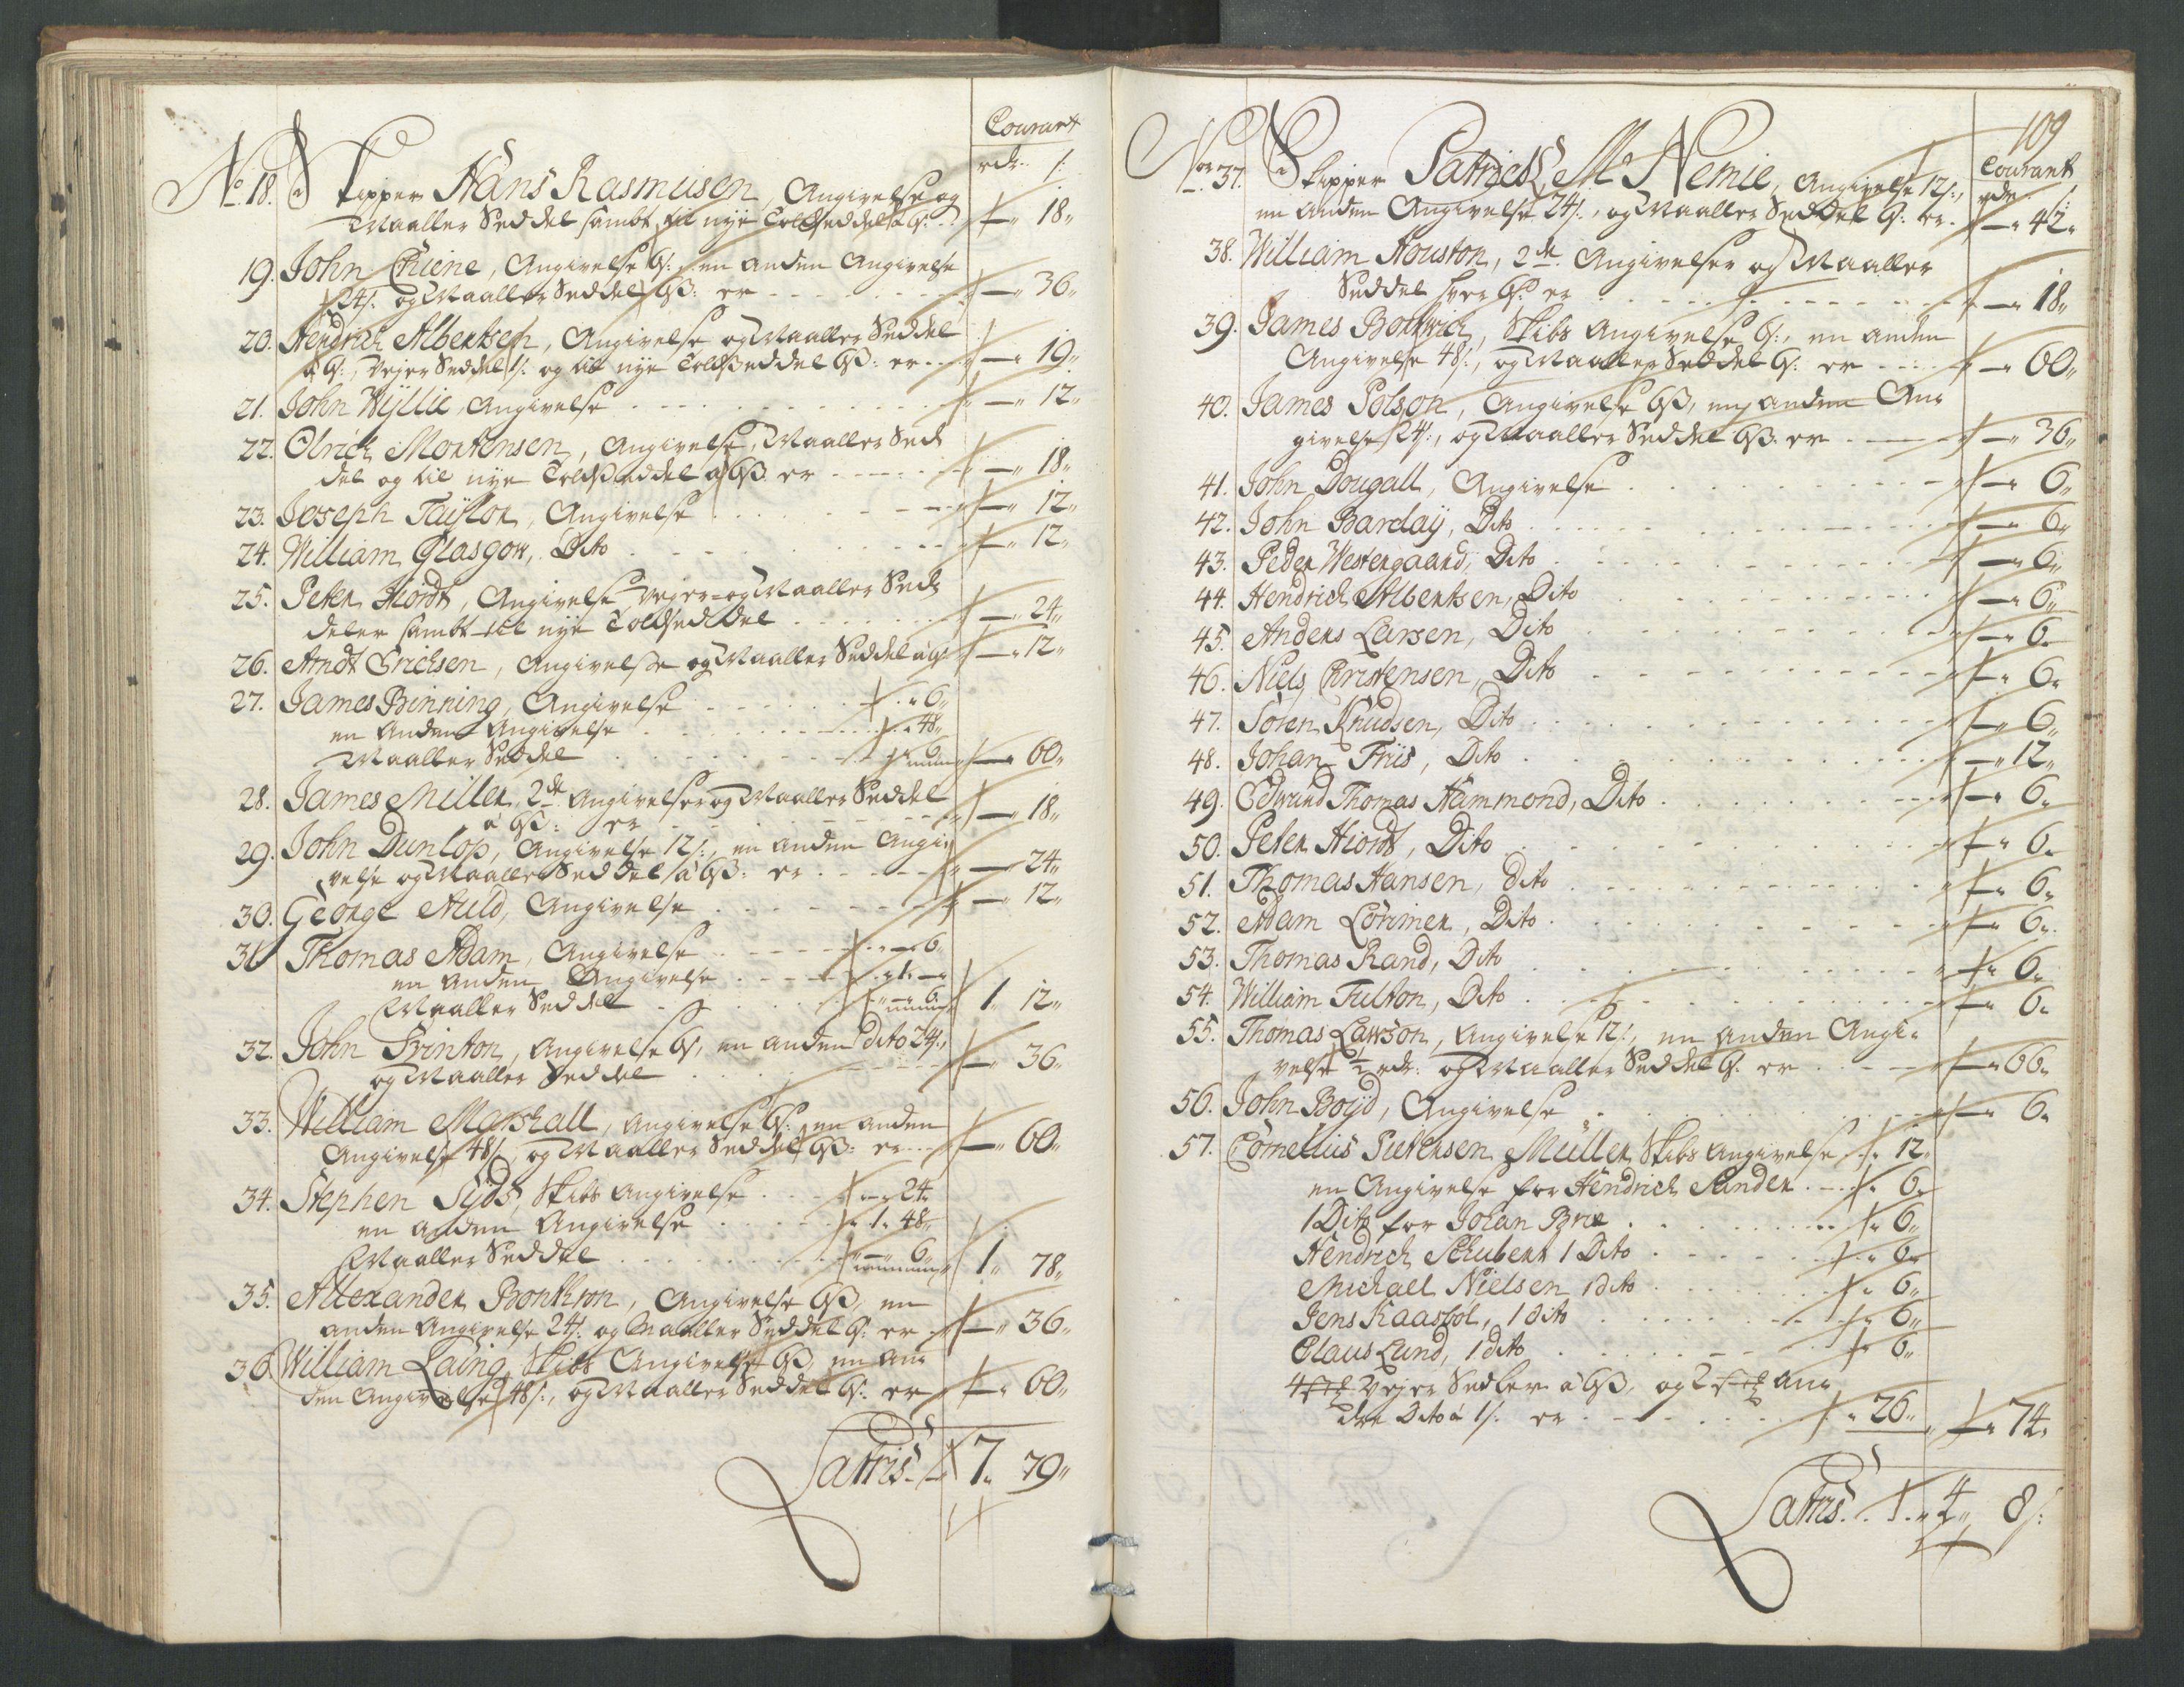 Courant
rdr. s:
No 18. Skipper Hans Rasmusen, Angivelse og
Maaller Seddel samt til nye Toldseddel a 6s: . . — " 18 "
19. John Chiene, Angivelse 6s: , en anden Angivelse
24s: og Maaller Seddel 6s: er - - - — " 36 "
20. Hendrich Albertsen, Angivelse og Maaller Seddel
a 6s:, Vejer Seddel 1s: og til nye Toldseddel 6s: er - - — " 19 "
21. John Wyllie, Angivelse . . . — " 12 "
22. Olrich Mortensen, Angivelse, Maaller Sed
del og til nye Toldseddel a 6s: er - - - — " 18 "
23. Joseph Taylor, Angivelse . . . — " 12 "
24. William Glasgow, Dito . . . — " 12 "
25. Peter Hiordt, Angivelse Vejer- og Maaller Sed=
deler samt til nye Toldseddel . . . — " 24 "
26. Arndt Erichsen, Angivelse og Maaller Seddel a 6s: — " 12 "
27. James Binning, Angivelse . . . " 6 "
en anden Angivelse . . . " 48 "
Maaller Seddel . . . " 6 " — " 60 "
28. James Miller, 2de Angivelser og Maaller Seddel
a 6s: er - - - — " 18 "
29. John Dunlop, Angivelse 12s:, en anden Angi=
velse og Maaller Seddel a 6s: er - - - — " 24 "
30. George Auld, Angivelse . . . — " 12 "
31. Thomas Adam, Angivelse . . . " — " 6 "
en anden Angivelse . . . " 1 " — "
Maaller Seddel . . . " — " 6 " 1 " 12 "
32. John Svinton, Angivelse 6s:, en anden dito 24s:,
og Maaller Seddel . . . — " 36 "
33. William Marshall, Angivelse 6s:, en anden
Angivelse 48s:, og Maaller Seddel 6s: er - - - — " 60 "
34. Stephen Syds, Skibs Angivelse . . . " — " 24 "
en anden Angivelse . . . " 1 " 48 "
Maaller Seddel . . . " — " 6 " 1 " 78 "
35. Allexander Bonthron, Angivelse 6s:, en
anden Angivelse 24s: og Maaller Seddel 6s: er — " 36 "
36. William Laing, Skibs Angivelse 6s:, en an=
den Angivelse 48s:, og Maaller Seddel 6s: er — " 60 "
Latris. 7 " 79 "
109
Courant
rdr. s:
No 37. Skipper Patrick Mc Nemie, Angivelse 12s:,
en anden Angivelse 24s:, og Maaller Seddel 6s: er. — " 42 "
38. William Houston, 2de Angivelser og Maaller
Seddel hver 6s: er . . . — " 18 "
39. James Bothrick, Skibs Angivelse 6s:, en anden
Angivelse 48s:, og Maaller Seddel 6s: er - - - — " 60 "
40. James Polson, Angivelse 6s:, en anden An=
givelse 24s:, og Maaller Seddel 6s: er - - - — " 36 "
41. John Dougall, Angivelse . . . — " 6 "
42. John Barclaÿ, Dito . . . — " 6 "
43. Peder Westergaard, Dito . . . — " 6 "
44. Hendrich Albertsen, Dito . . . — " 6 "
45. Anders Larsen, Dito . . . — " 6 "
46. Niels Christensen, Dito . . . — " 6 "
47. Sören Knudsen, Dito . . . — " 6 "
48. Johan Friis, Dito . . . — " 12 "
49. Edward Thomas Hammond, Dito . . . — " 6 "
50. Peter Hiordt, Dito . . . — " 6 "
51. Thomas Hansen, dito . . . — " 6 "
52. Adam Lorimer, Dito . . . — " 6 "
53. Thomas Rand, Dito . . . — " 6 "
54. William Fulton, Dito . . . — " 6 "
55. Thomas Lawson, Angivelse 12s:, en anden Angi=
velse ½ rdr: og Maaller Seddel 6s: er . . . — " 66 "
56. John Boÿd, Angivelse . . . — " 6 "
57. Cornelius Pietersen Müller, Skibs Angivelse " 12 "
en Angivelse for Hendrich Sander . . . " 6 "
1 Dito for Johan Brie . . . " 6 "
Hendrich Schubert 1 Dito . . . " 6 "
Michaell Nielsen 1 dito . . . " 6 "
Jens Kaasböl, 1 dito . . . " 6 "
Claus Lund, 1 dito . . . " 6 "
4 Vejer Sedler a 6s:, og 2 an=
dre Dito a 1s: er . . . " 26 " — " 74 "
Latris. . . 4 " 8s: